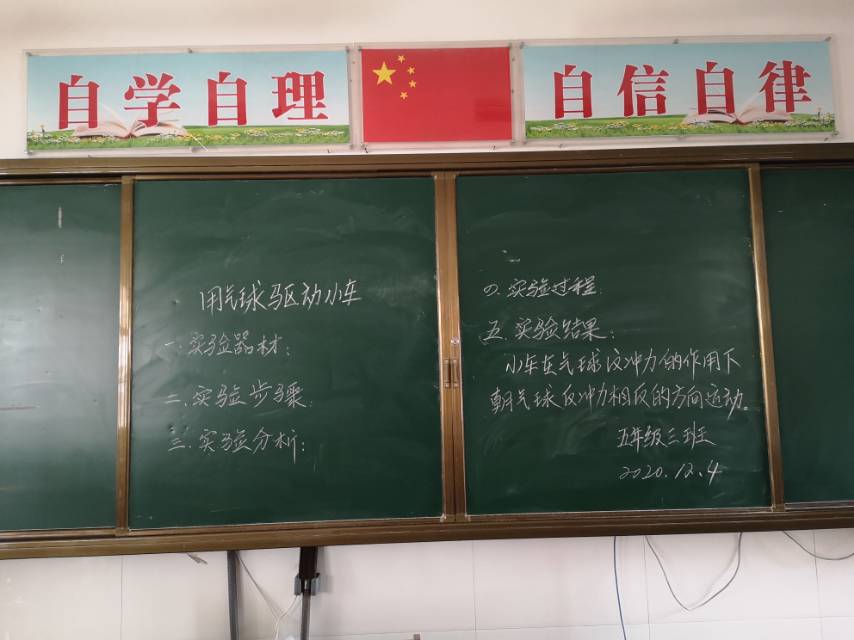 自学自理
自信自律
用气球驱动小车
一.实验器材:
二.实验步骤:
三.实验分析:
四.实验过程:
五.实验结果:
小车在气球反冲力的作用下
朝气球反冲力相反的方向运动。
五年级三班
2020.12.4